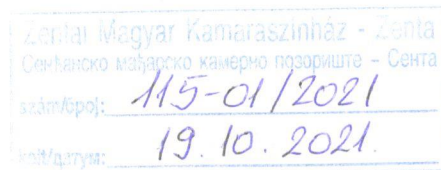 Zentai Magyar Kamaraszínház - Zenta
Сенћанско мађарско камерно позориште – Сента
szám/број: 115-01/2021
kelt/датум: 19. 10. 2021.